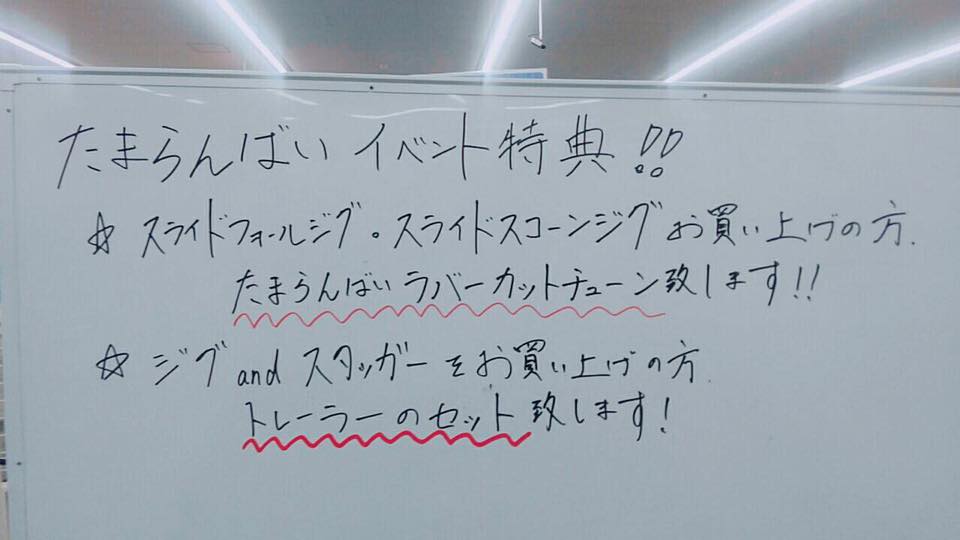 たまらんばい イベント特典!!
☆ スライドフォールジグ。スライドスコーンジグお買い上げの方.
たまらんばいラバーカットチューン致します!!
☆ ジグ and スタッガーをお買い上げの方.
トレーラーのセット致します!